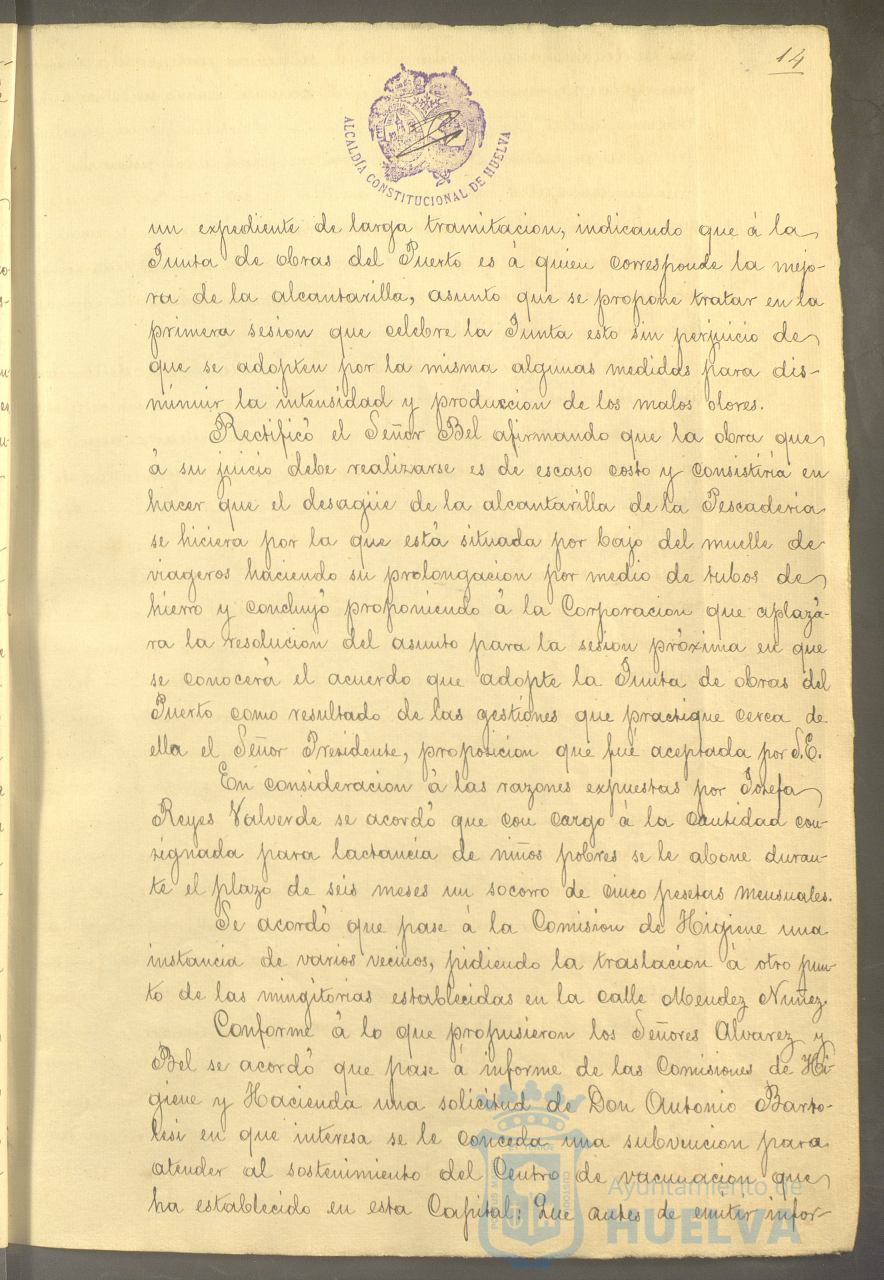 14
ALCALDÍA CONSTITUCIONAL DE HUELVA
un expediente de larga tramitacion, indicando que á la
Junta de obras del Puerto es á quien corresponde la mejo-
ra de la alcantarilla, asunto que se propone tratar en la
primera sesion que celebre la Junta esto sin perjuicio de
que se adopten por la misma algunas medidas para dis-
minuir la intensidad y produccion de los malos olores.
Rectificó el Señor Bel afirmando que la obra que
á su juicio debe realizarse es de escaso costo y consistiria en
hacer que el desagüe de la alcantarilla de la Pescaderia
se hiciera por la que está situada por bajo del muelle de
viageros haciendo su prolongacion por medio de tubos de
hierro y concluyó proponiendo á la Corporacion que aplazá-
ra la resolucion del asunto para la sesion próxima en que
se conocerá el acuerdo que adopte la Junta de obras del
Puerto como resultado de las gestiones que practique cerca de
ella el Señor Presidente, proposicion que fué aceptada por S.E.
En consideracion á las razones expuestas por Josefa
Reyes Valverde se acordó que con cargo á la cantidad con-
signada para lactancia de niños pobres se le abone duran-
te el plazo de seis meses un socorro de cinco pesetas mensuales.
Se acordó que pase á la Comision de Higiene una
instancia de varios vecinos, pidiendo la traslacion á otro pun-
to de las mingitorias establecidas en la calle Mendez Nuñez.
Conforme á lo que propusieron los Señores Alvarez y
Bel se acordó que pase á informe de las Comisiones de Hi-
giene y Hacienda una solicitud de Don Antonio Barto-
lesi en que interesa se le conceda una subvencion para
atender al sostenimiento del Centro de vacunacion que
ha establecido en esta Capital: Que antes de emitir infor-
Ayuntamiento de
HUELVA